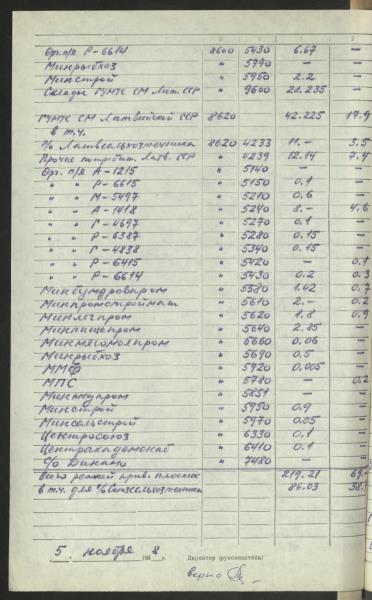 А Б В 1 2
Орг. п/я Р-6614 8600 5430 6.67 —
Минрыбхоз " 5790 — —
Минстрой " 5950 2.2 —
Склады ГУМТС СМ Лит. ССР " 9600 28.235 —
ГУМТС СМ Латвийской ССР 8620 42.225 17.9
в т.ч.
Латвсельхозтехника 8620 4233 11.- 3.5
Прочие потребит. Латв. ССР " 4239 12.14 7.4
Орг. п/я А-1215 " 5140 — —
" " Р-6615 " 5150 0.1 —
" " М-5497 " 5210 0.6 —
" " А-1418 " 5240 8.- 4.6
" " Г-4697 " 5270 0.1 —
" " Р-6387 " 5280 0.15 —
" " Г-4838 " 5340 0.15 —
" " Р-6415 " 5420 — 0.1
" " Р-6614 " 5430 0.2 0.3
Минбумдревпром " 5380 1.42 0.7
Минпромстроймат " 5610 2.- 0.2
Минлегпром " 5620 1.8 0.9
Минпищепром " 5640 2.85 —
Минмясомолпром " 6660 0.06 —
Минрыбхоз " 5690 0.5 —
ММФ " 5720 0.005 —
МПС " 5780 — 0.2
" 5851 — —
Минстрой " 5950 0.9 —
Минсельстрой " 5970 0.05 —
Центросоюз " 6330 0.1 —
" 6410 0.1 —
Динамо " 7480 — —
Всего ремней прив. плоских 219.21
в т.ч. для Союзсельхозтехника 86.03
„ 5 „ ноября 198 8 г. Директор (руководитель)
верно